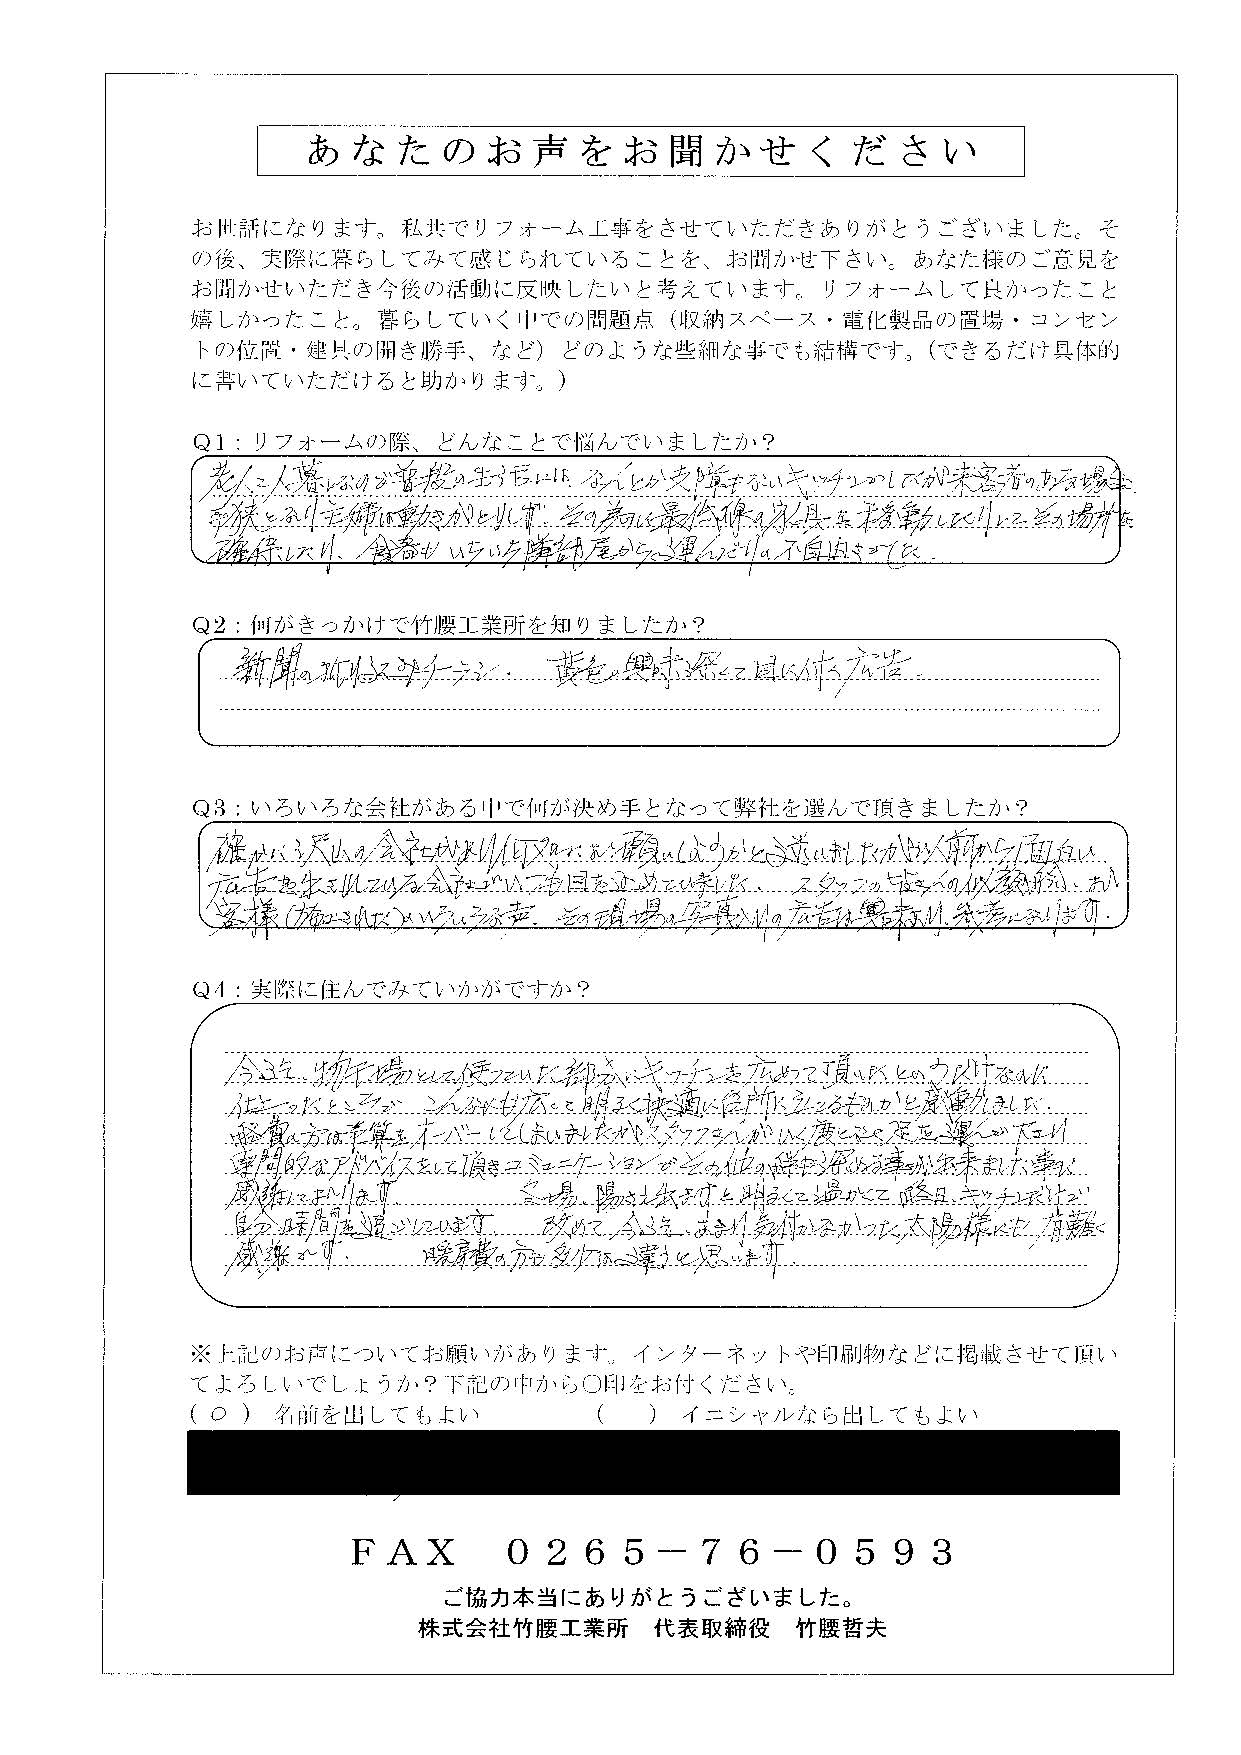 あなたのお声をお聞かせください
お世話になります。私共でリフォーム工事をさせていただきありがとうございました。そ
の後、実際に暮らしてみて感じられていることを、お聞かせ下さい。あなた様のご意見を
お聞かせいただき今後の活動に反映したいと考えています。リフォームして良かったこと
嬉しかったこと。暮らしていく中での問題点（収納スペース・電化製品の置場・コンセン
トの位置・建具の開き勝手、など）どのような些細な事でも結構です。（できるだけ具体的
に書いていただけると助かります。）
Q1：リフォームの際、どんなことで悩んでいましたか？
老人二人暮しなので普段の生活には、なんとか支障もないキッチンでしたが来客者のある場合
手狭となり主婦は動きがとれず、その為に最低線の家具を移動したりしてその場所を
確保したり、食器もいちいち隣部屋から運んだりの不自由さでした。
Q2：何がきっかけで竹腰工業所を知りましたか？
新聞の折り込みチラシ。 黄色の興味深くて目に付く広告。
Q3：いろいろな会社がある中で何が決め手となって弊社を選んで頂きましたか？
確かに沢山の会社があり何処にお願いしようかと迷いましたが以前から面白い
広告を出されている会社でいつも目を止めていました。スタッフの皆さんの似顔絵、お
客様（施工された）のいろいろな声、その現場の写真入りの広告は出来より参考になります。
Q4：実際に住んでみていかがですか？
今迄、物干場として使っていた部分にキッチンを広めて頂いたとのうだけなのに
仕上ったところが こんなにも広くて明るく快適に台所になるものかと感動しました。
経費の方は予算をオーバーしてしまいましたがスタッフさんがいく度となく足を運んで下さり
専門的なアドバイスをして頂きコミュニケーションがその他の絆を深める事が出来ました事も
感謝しております。 冬場、陽さえ出ますと明るくて温かくて 略日、キッチンだけで
自分時間を過ごしています。 改めて 今迄、あまり気付かなかった太陽様にも有難く
感謝です。 暖房費の方も多少は違うと思います。
※上記のお声についてお願いがあります。インターネットや印刷物などに掲載させて頂い
てよろしいでしょうか？下記の中から〇印をお付ください。
（ 〇 ） 名前を出してもよい （ ） イニシャルなら出してもよい
FAX 0265－76－0593
ご協力本当にありがとうございました。
株式会社竹腰工業所 代表取締役 竹腰哲夫